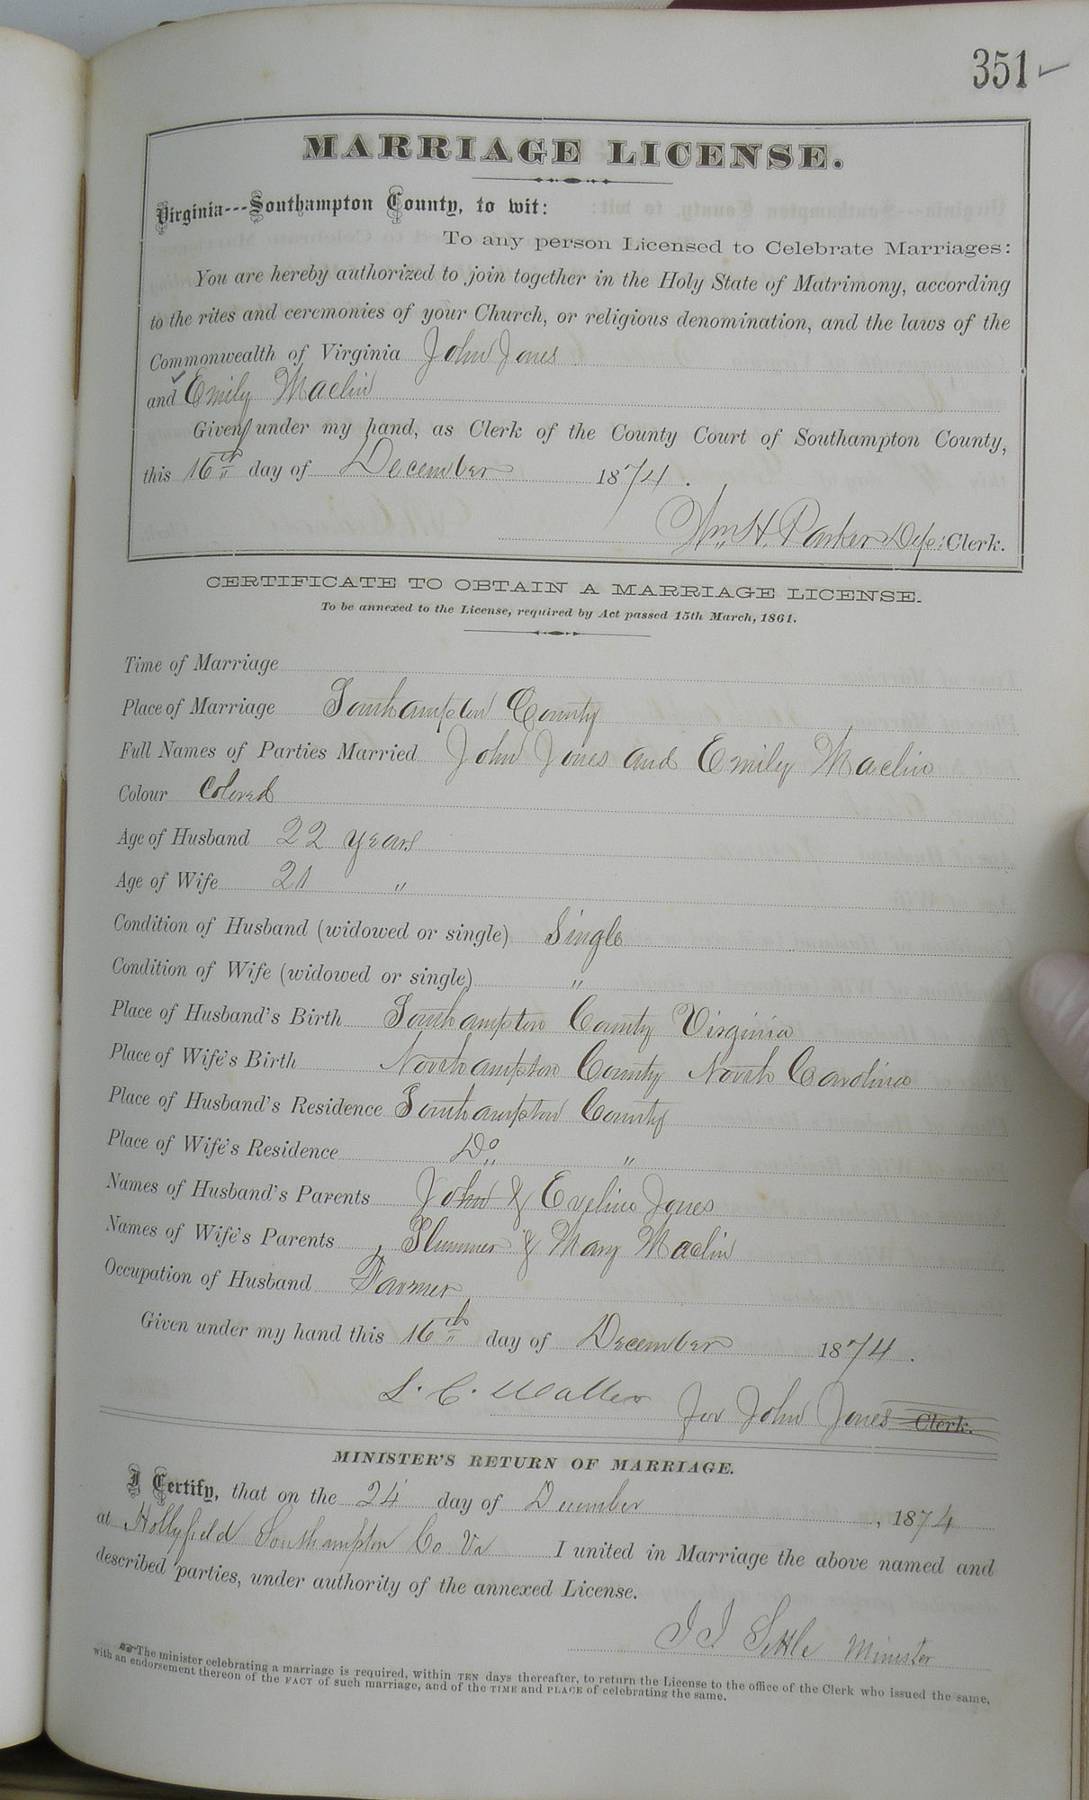 351 ✓
MARRIAGE LICENSE.
Virginia---Southampton County, to wit:
To any person Licensed to Celebrate Marriages:
You are hereby authorized to join together in the Holy State of Matrimony, according
to the rites and ceremonies of your Church, or religious denomination, and the laws of the
Commonwealth of Virginia John Jones
and Emily Maclin
Given under my hand, as Clerk of the County Court of Southampton County,
this 16th day of December 1874.
Wm. H. Parker Dep: Clerk.
CERTIFICATE TO OBTAIN A MARRIAGE LICENSE.
To be annexed to the License, required by Act passed 15th March, 1861.
Time of Marriage
Place of Marriage Southampton County
Full Names of Parties Married John Jones and Emily Maclin
Colour Colored
Age of Husband 22 years
Age of Wife 21 "
Condition of Husband (widowed or single) Single
Condition of Wife (widowed or single) "
Place of Husband's Birth Southampton County Virginia
Place of Wife's Birth Northampton County North Carolina
Place of Husband's Residence Southampton County
Place of Wife's Residence Do "
Names of Husband's Parents John & Eveline Jones
Names of Wife's Parents Plummer & Mary Maclin
Occupation of Husband Farmer
Given under my hand this 16th day of December 1874.
L. C. for John Jones Clerk.
MINISTER'S RETURN OF MARRIAGE.
I Certify, that on the 24 day of December, 1874
at Hollyfield Southampton Co Va I united in Marriage the above named and
described parties, under authority of the annexed License.
J J Settle Minister
The minister celebrating a marriage is required, within TEN days thereafter, to return the License to the office of the Clerk who issued the same,
with an endorsement thereon of the FACT of such marriage, and of the TIME and PLACE of celebrating the same.